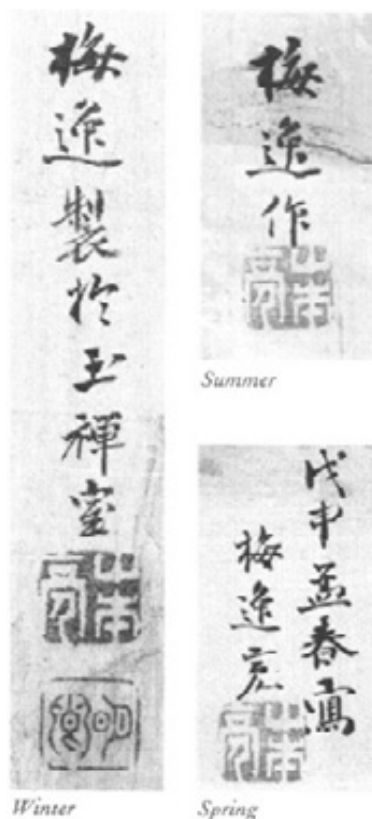 梅逸製於玉禪室
Winter
梅逸作
Summer
戊申孟春寫
梅逸亮
Spring